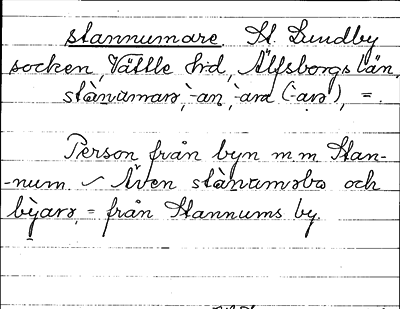 stannumare. St. Lundby
socken, Vättle hd, Älfsborgs län,
stànumarə, -an, -ara (-arə), =.
Person från byn m m Stan-
-num. ✓ Även stànumsbo och
bỳarə, = från Stannums by.